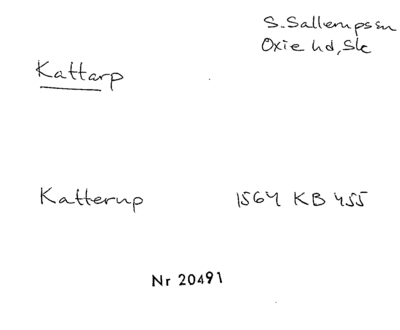 S. Sallerups sn
Oxie hd, Sk
Kattarp
Katterup 1564 KB 455
Nr 20491